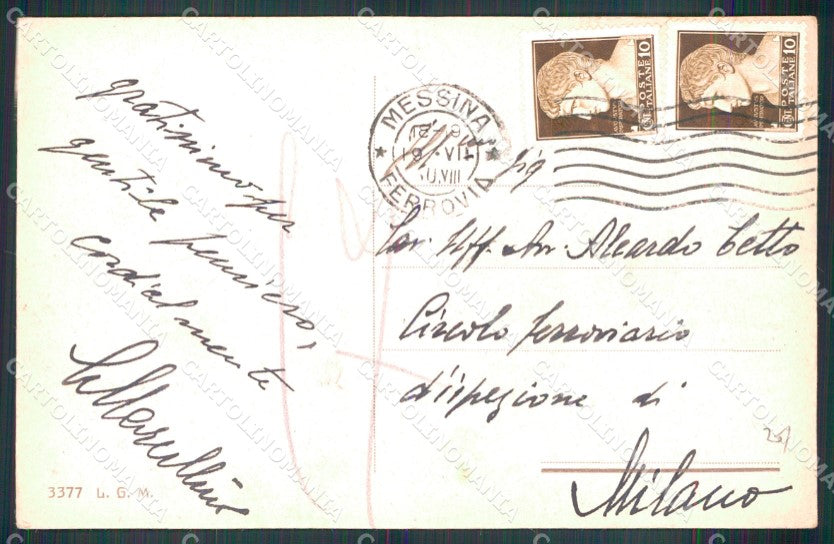 gratissimo per
gentile pensiero,
cordialmente
3377 L. G. M.
MESSINA
FERROVIA
18-19
19 · VII
VIII
POSTE ITALIANE
10
POSTE ITALIANE
10
Sig
Cav. Uff. Avv. Aleardo Cetto
Circolo ferroviario
d'ispezione di
Milano
CARTOLINOMANIA